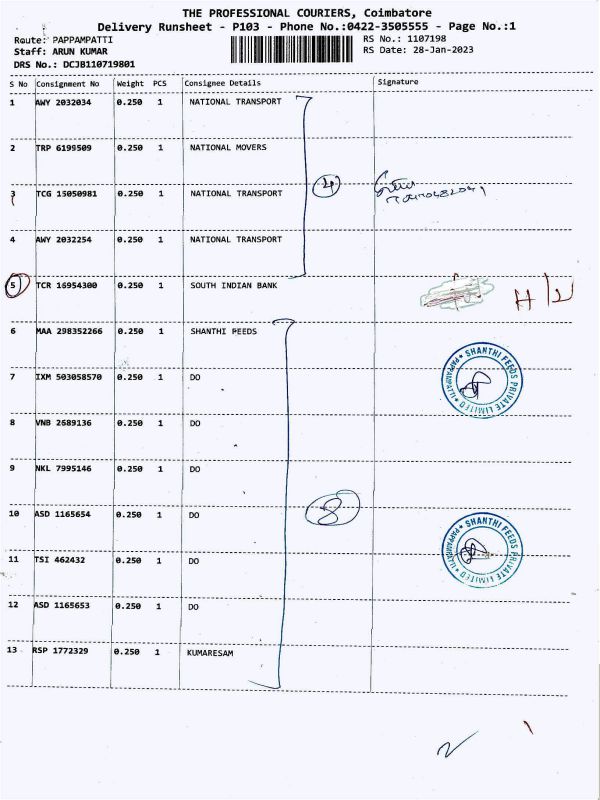 THE PROFESSIONAL COURIERS, Coimbatore
Delivery Runsheet - P103 - Phone No.:0422-3505555 - Page No.:1
Route: PAPPAMPATTI
RS No.: 1107198
Staff: ARUN KUMAR
RS Date: 28-Jan-2023
DRS No.: DCJB110719801
S No Consignment No Weight PCS Consignee Details Signature
1 AWY 2032034 0.250 1 NATIONAL TRANSPORT
2 TRP 6199509 0.250 1 NATIONAL MOVERS
4
3 TCG 15050981 0.250 1 NATIONAL TRANSPORT
4 AWY 2032254 0.250 1 NATIONAL TRANSPORT
5 TCR 16954300 0.250 1 SOUTH INDIAN BANK
6 MAA 298352266 0.250 1 SHANTHI FEEDS
7 IXM 503058570 0.250 1 DO
SHANTHI FEEDS PRIVATE LIMITED PAPPAMPATTI
8 VNB 2689136 0.250 1 DO
9 NKL 7995146 0.250 1 DO
8
10 ASD 1165654 0.250 1 DO
11 TSI 462432 0.250 1 DO
SHANTHI FEEDS PRIVATE LIMITED PAPPAMPATTI
12 ASD 1165653 0.250 1 DO
13 RSP 1772329 0.250 1 KUMARESAM